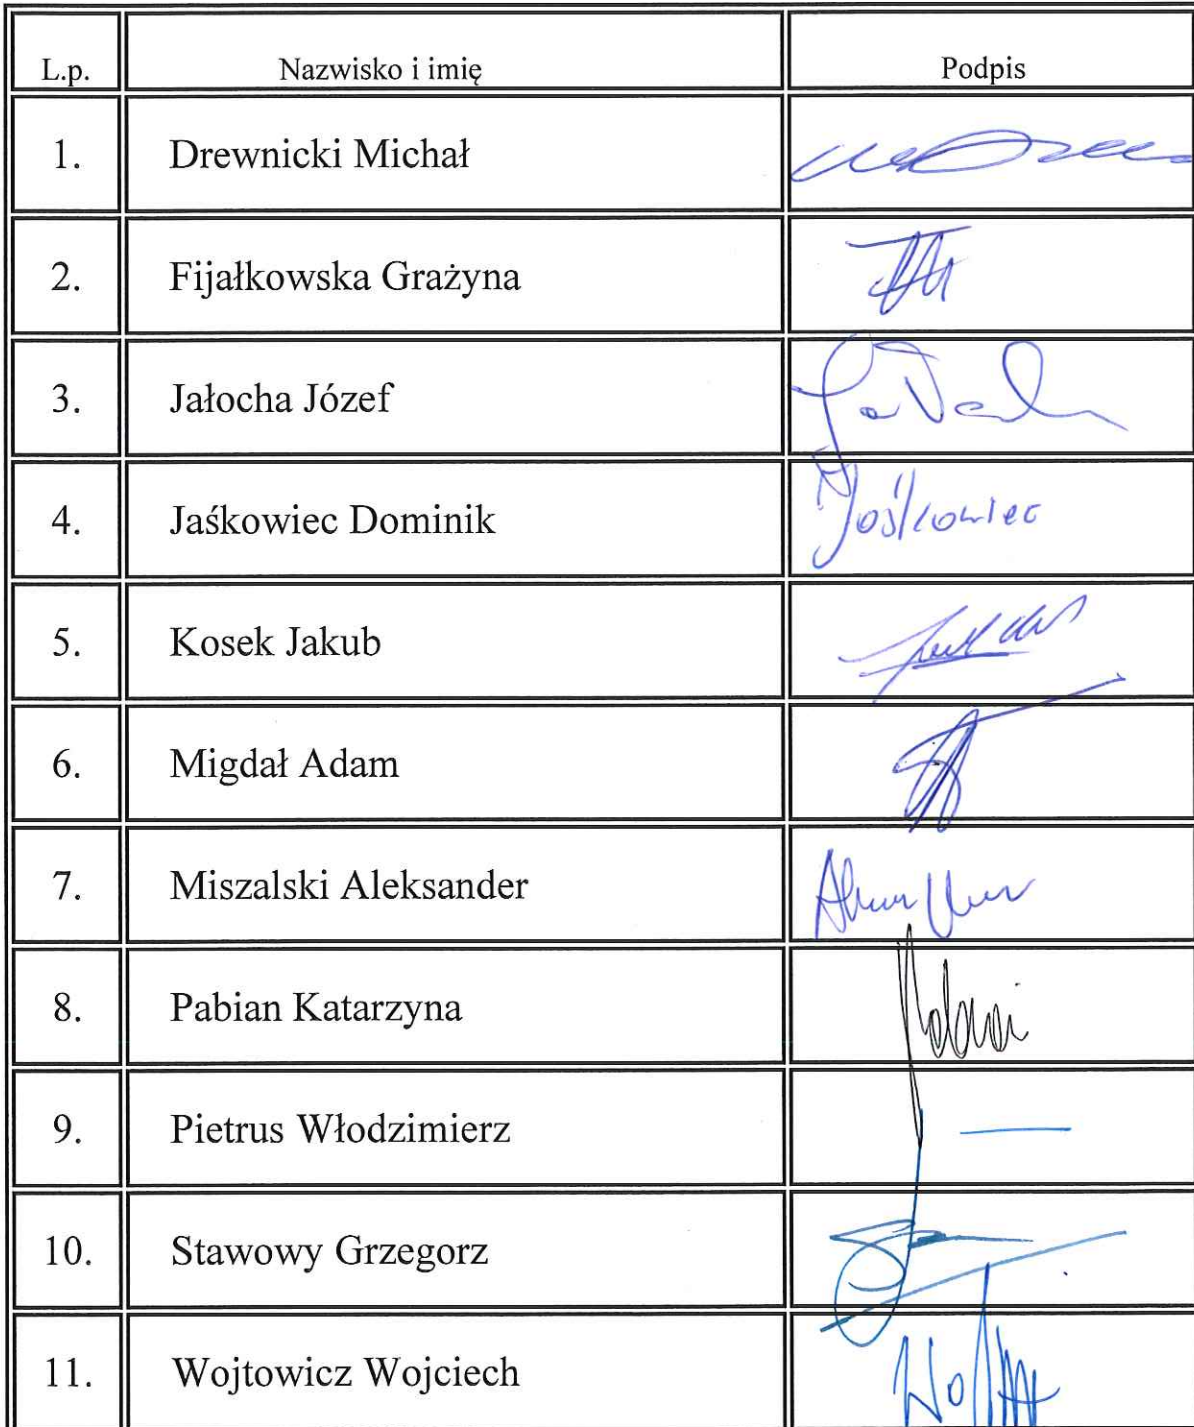 L.p. Nazwisko i imię Podpis
1. Drewnicki Michał
2. Fijałkowska Grażyna
3. Jałocha Józef
4. Jaśkowiec Dominik Jaśkowiec
5. Kosek Jakub
6. Migdał Adam
7. Miszalski Aleksander
8. Pabian Katarzyna
9. Pietrus Włodzimierz —
10. Stawowy Grzegorz
11. Wojtowicz Wojciech